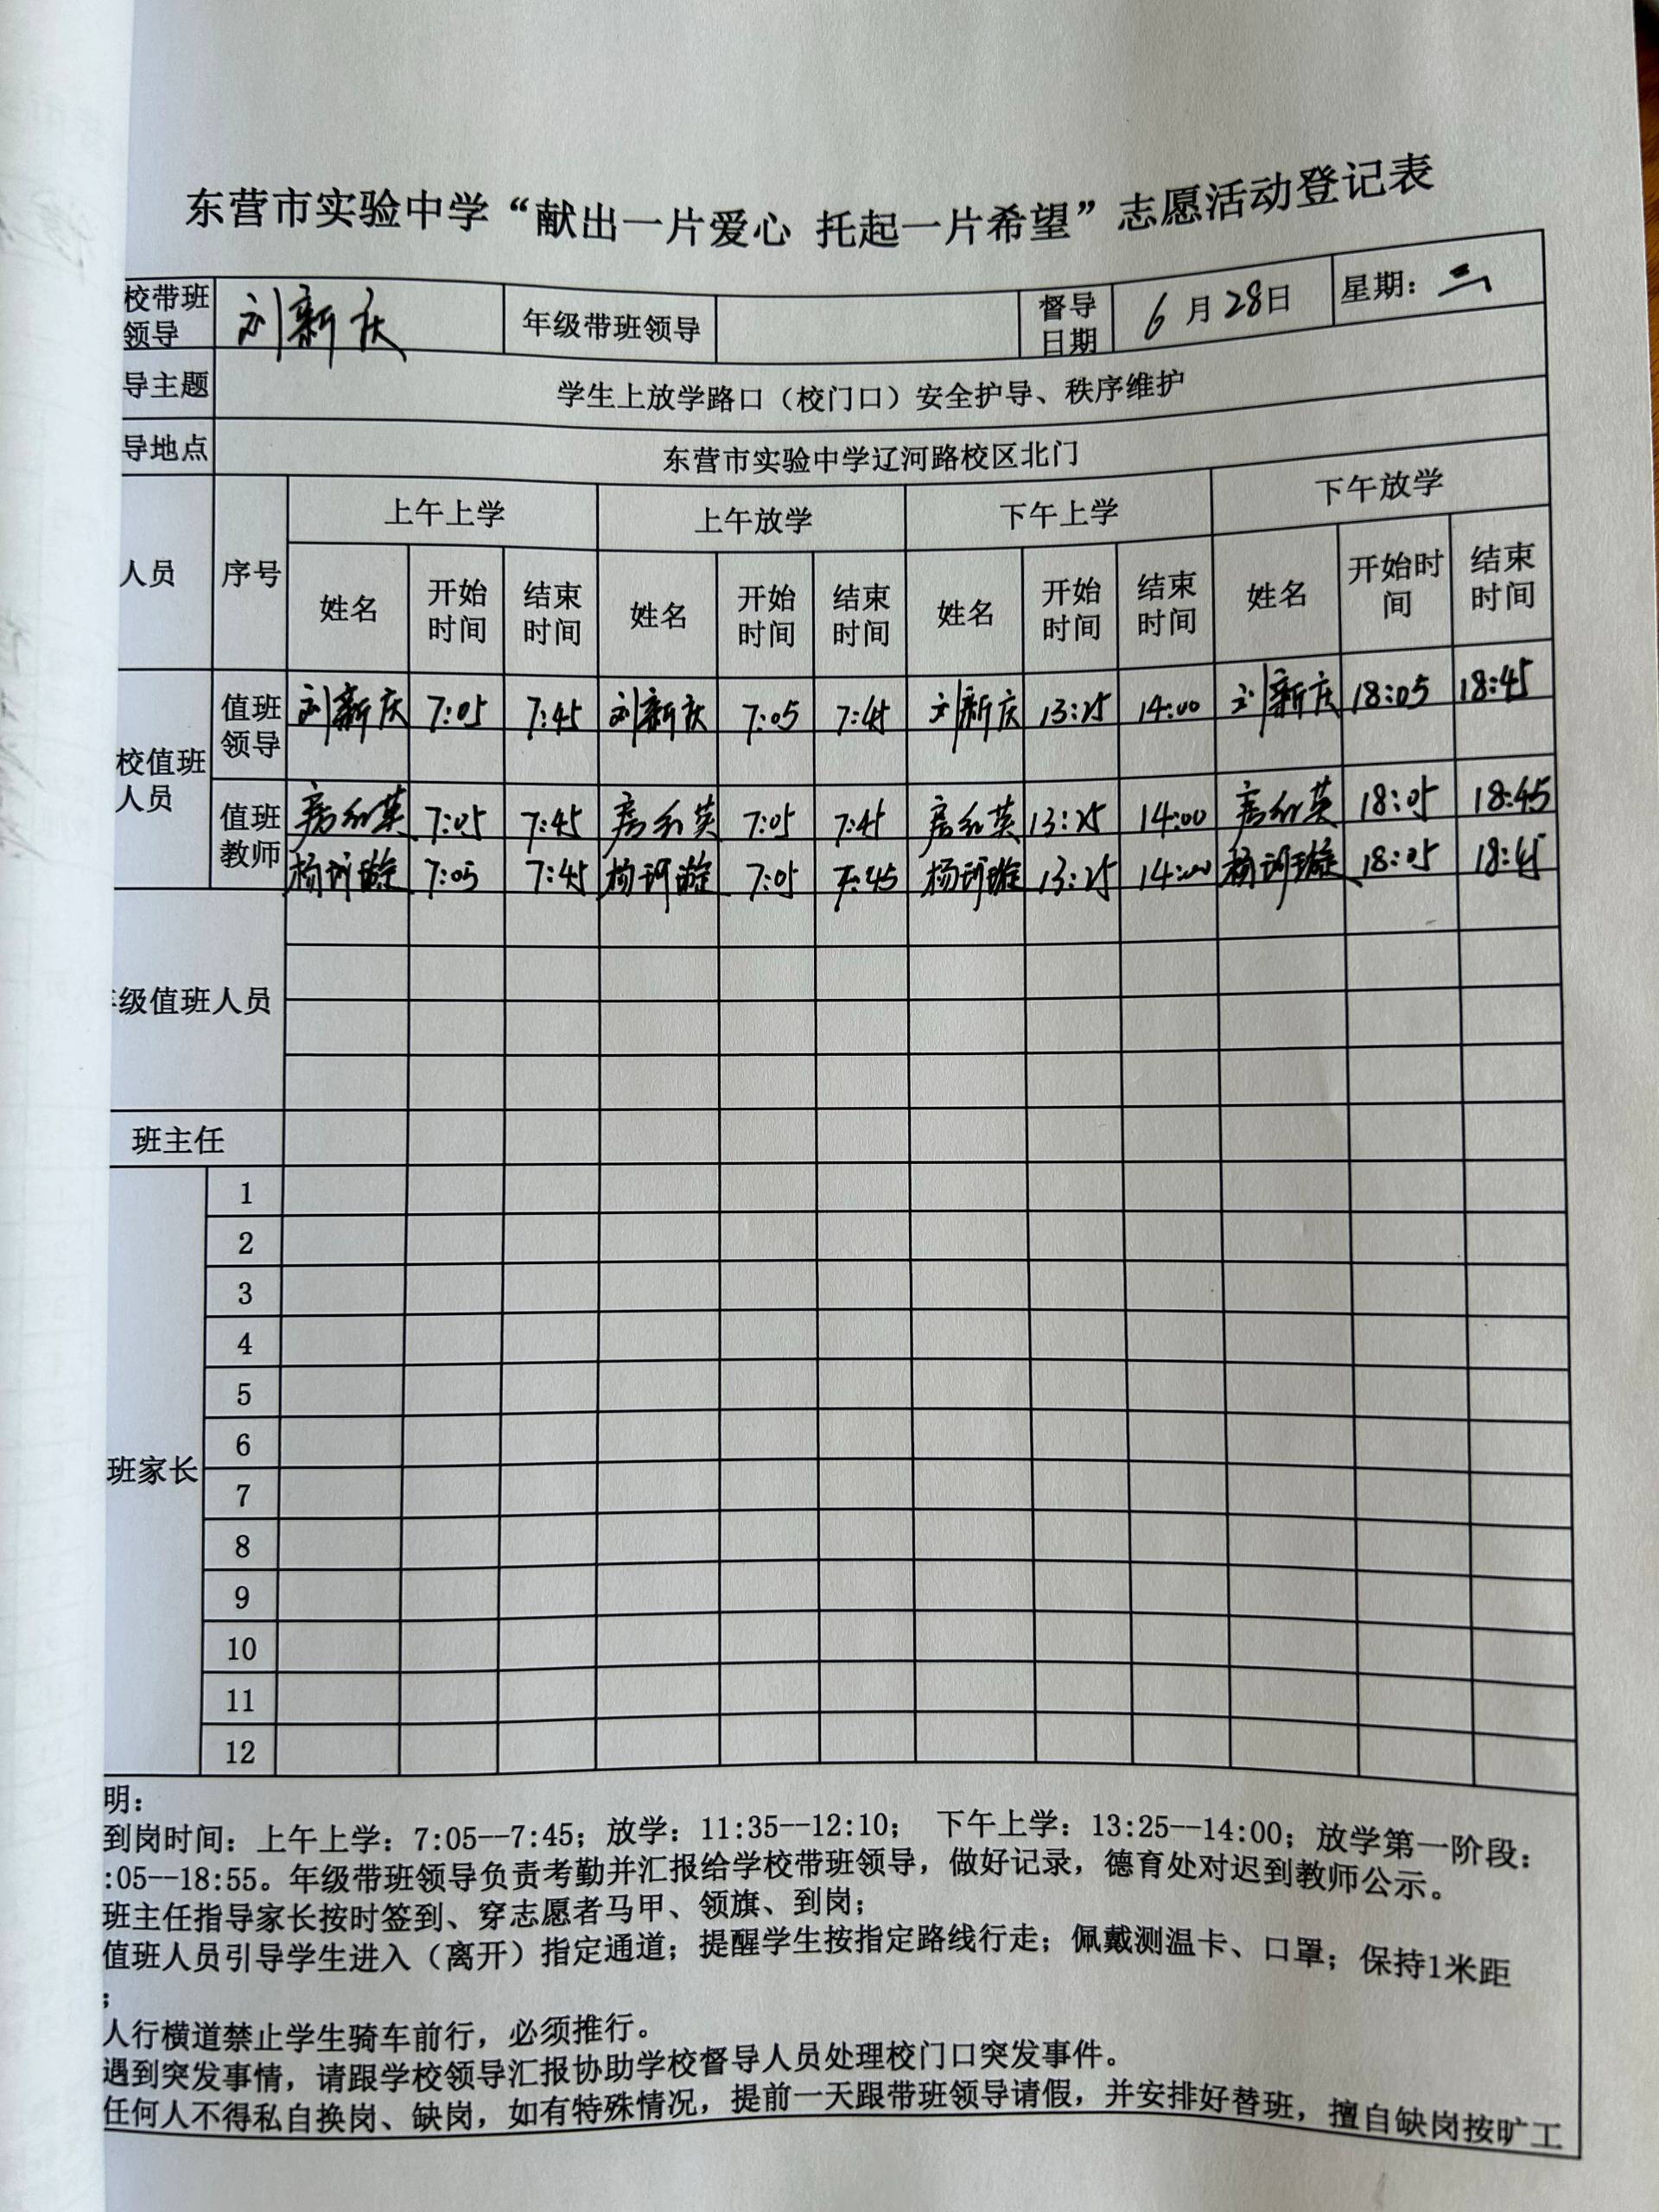 东营市实验中学“献出一片爱心 托起一片希望”志愿活动登记表
校带班领导 刘新庆 年级带班领导 督导日期 6月28日 星期:二
导主题 学生上放学路口(校门口)安全护导、秩序维护
导地点 东营市实验中学辽河路校区北门
人员 序号 上午上学 上午放学 下午上学 下午放学
姓名 开始时间 结束时间 姓名 开始时间 结束时间 姓名 开始时间 结束时间 姓名 开始时间 结束时间
校值班人员 值班领导 刘新庆 7:05 7:45 刘新庆 7:05 7:45 刘新庆 13:25 14:00 刘新庆 18:05 18:45
值班教师 7:05 7:45 7:05 7:45 13:25 14:00 18:05 18:45
7:05 7:45 7:05 7:45 13:25 14:00 18:05 18:45
级值班人员
班主任
班家长
1
2
3
4
5
6
7
8
9
10
11
12
明:
到岗时间:上午上学:7:05--7:45;放学:11:35--12:10; 下午上学:13:25--14:00;放学第一阶段:
:05--18:55。年级带班领导负责考勤并汇报给学校带班领导,做好记录,德育处对迟到教师公示。
班主任指导家长按时签到、穿志愿者马甲、领旗、到岗;
值班人员引导学生进入(离开)指定通道;提醒学生按指定路线行走;佩戴测温卡、口罩;保持1米距
;
人行横道禁止学生骑车前行,必须推行。
遇到突发事情,请跟学校领导汇报协助学校督导人员处理校门口突发事件。
任何人不得私自换岗、缺岗,如有特殊情况,提前一天跟带班领导请假,并安排好替班,擅自缺岗按旷工